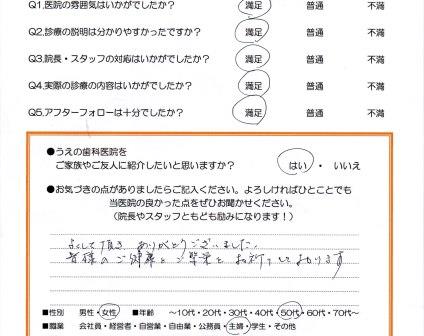 Q1.医院の雰囲気はいかがでしたか? 満足 普通 不満
Q2.診療の説明は分かりやすかったですか? 満足 普通 不満
Q3.院長・スタッフの対応はいかがでしたか? 満足 普通 不満
Q4.実際の診療の内容はいかがでしたか? 満足 普通 不満
Q5.アフターフォローは十分でしたか? 満足 普通 不満
●うえの歯科医院を
ご家族やご友人に紹介したいと思いますか? はい ・ いいえ
●お気づきの点がありましたらご記入ください。よろしければひとことでも
当医院の良かった点をぜひお聞かせください。
(院長やスタッフともども励みになります!)
よくして頂き ありがとうございました。
皆様のご健康とご繁栄をお祈りしております
■性別 男性・女性 ■年齢 〜10代・20代・30代・40代・50代・60代・70代〜
■職業 会社員・経営者・自営業・自由業・公務員・主婦・学生・その他